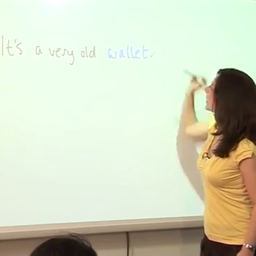 It's a very old wallet.